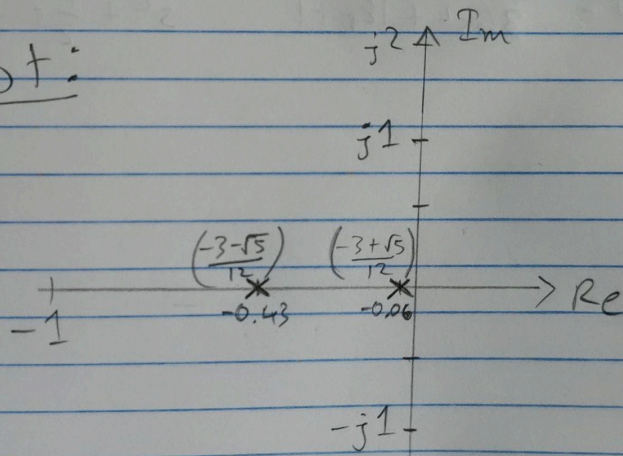 j2 Im
ot:
j1
(-3-√5)/12 (-3+√5)/12
Re
-0.43 -0.06
-1
-j1